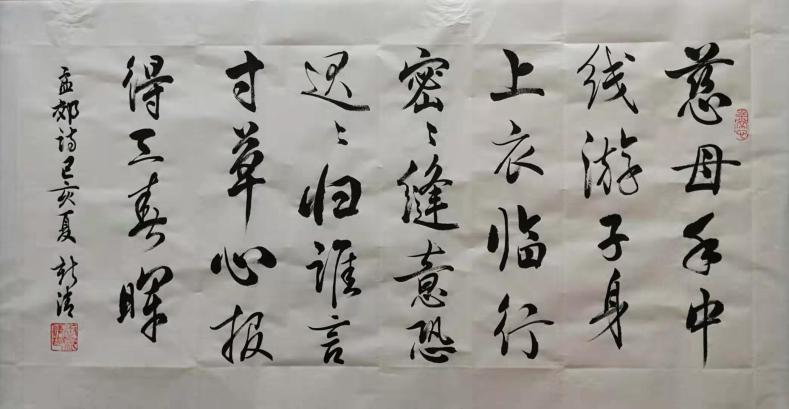 慈母手中
线游子身
上衣临行
密〻缝意恐
迟〻归谁言
寸草心报
得三春晖
孟郊诗己亥夏 新清